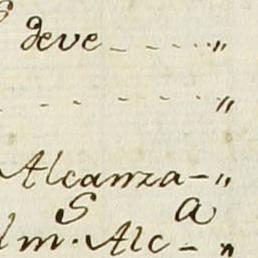 deve - - - - - "
- - - - - "
Alcanza - "
S a
lm. Alc - "